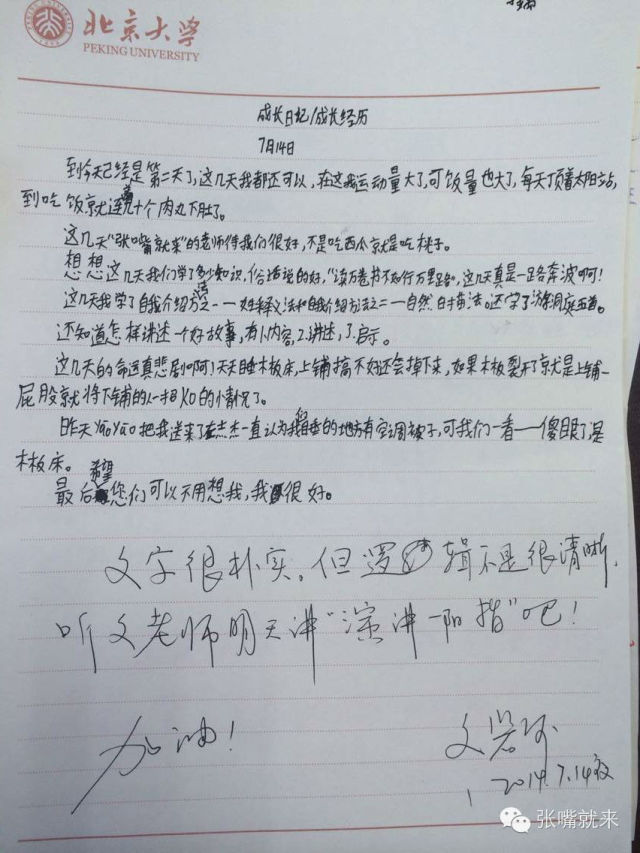 北京大学
PEKING UNIVERSITY
成长日记/成长经历
7月14日
到今天已经是第二天了,这几天我都还可以,在这我运动量大了,可饭量也大了,每天顶着太阳站,
到吃饭就连着几十个肉丸下肚了。
这几天“张嘴就来”的老师待我们很好,不是吃西瓜就是吃桃子。
想想这几天我们学了多少知识,俗话说的好,“读万卷书不如行万里路”,这几天真是一路奔波啊!
这几天我学了自我介绍方法之一——姓名释义法和自我介绍方法之二——自然白描法。还学了游洞庭五首。
还知道怎样讲述一个好故事,有1.内容,2.讲述,3.启示。
这几天的命运真悲剧啊!天天睡木板床,上铺搞不好还会掉下来,如果木板裂开了就是上铺一
屁股就将下铺的人一招KO的情况了。
昨天yáo yáo把我送来了 一直认为我们睡的地方有空调被子,可我们一看——傻眼了,是
木板床。
最后希望您们可以不用想我,我很好。
文字很朴实,但逻辑不是很清晰,
听文老师明天讲“演讲一阳指”吧!
加油!
2014.7.14夜
张嘴就来